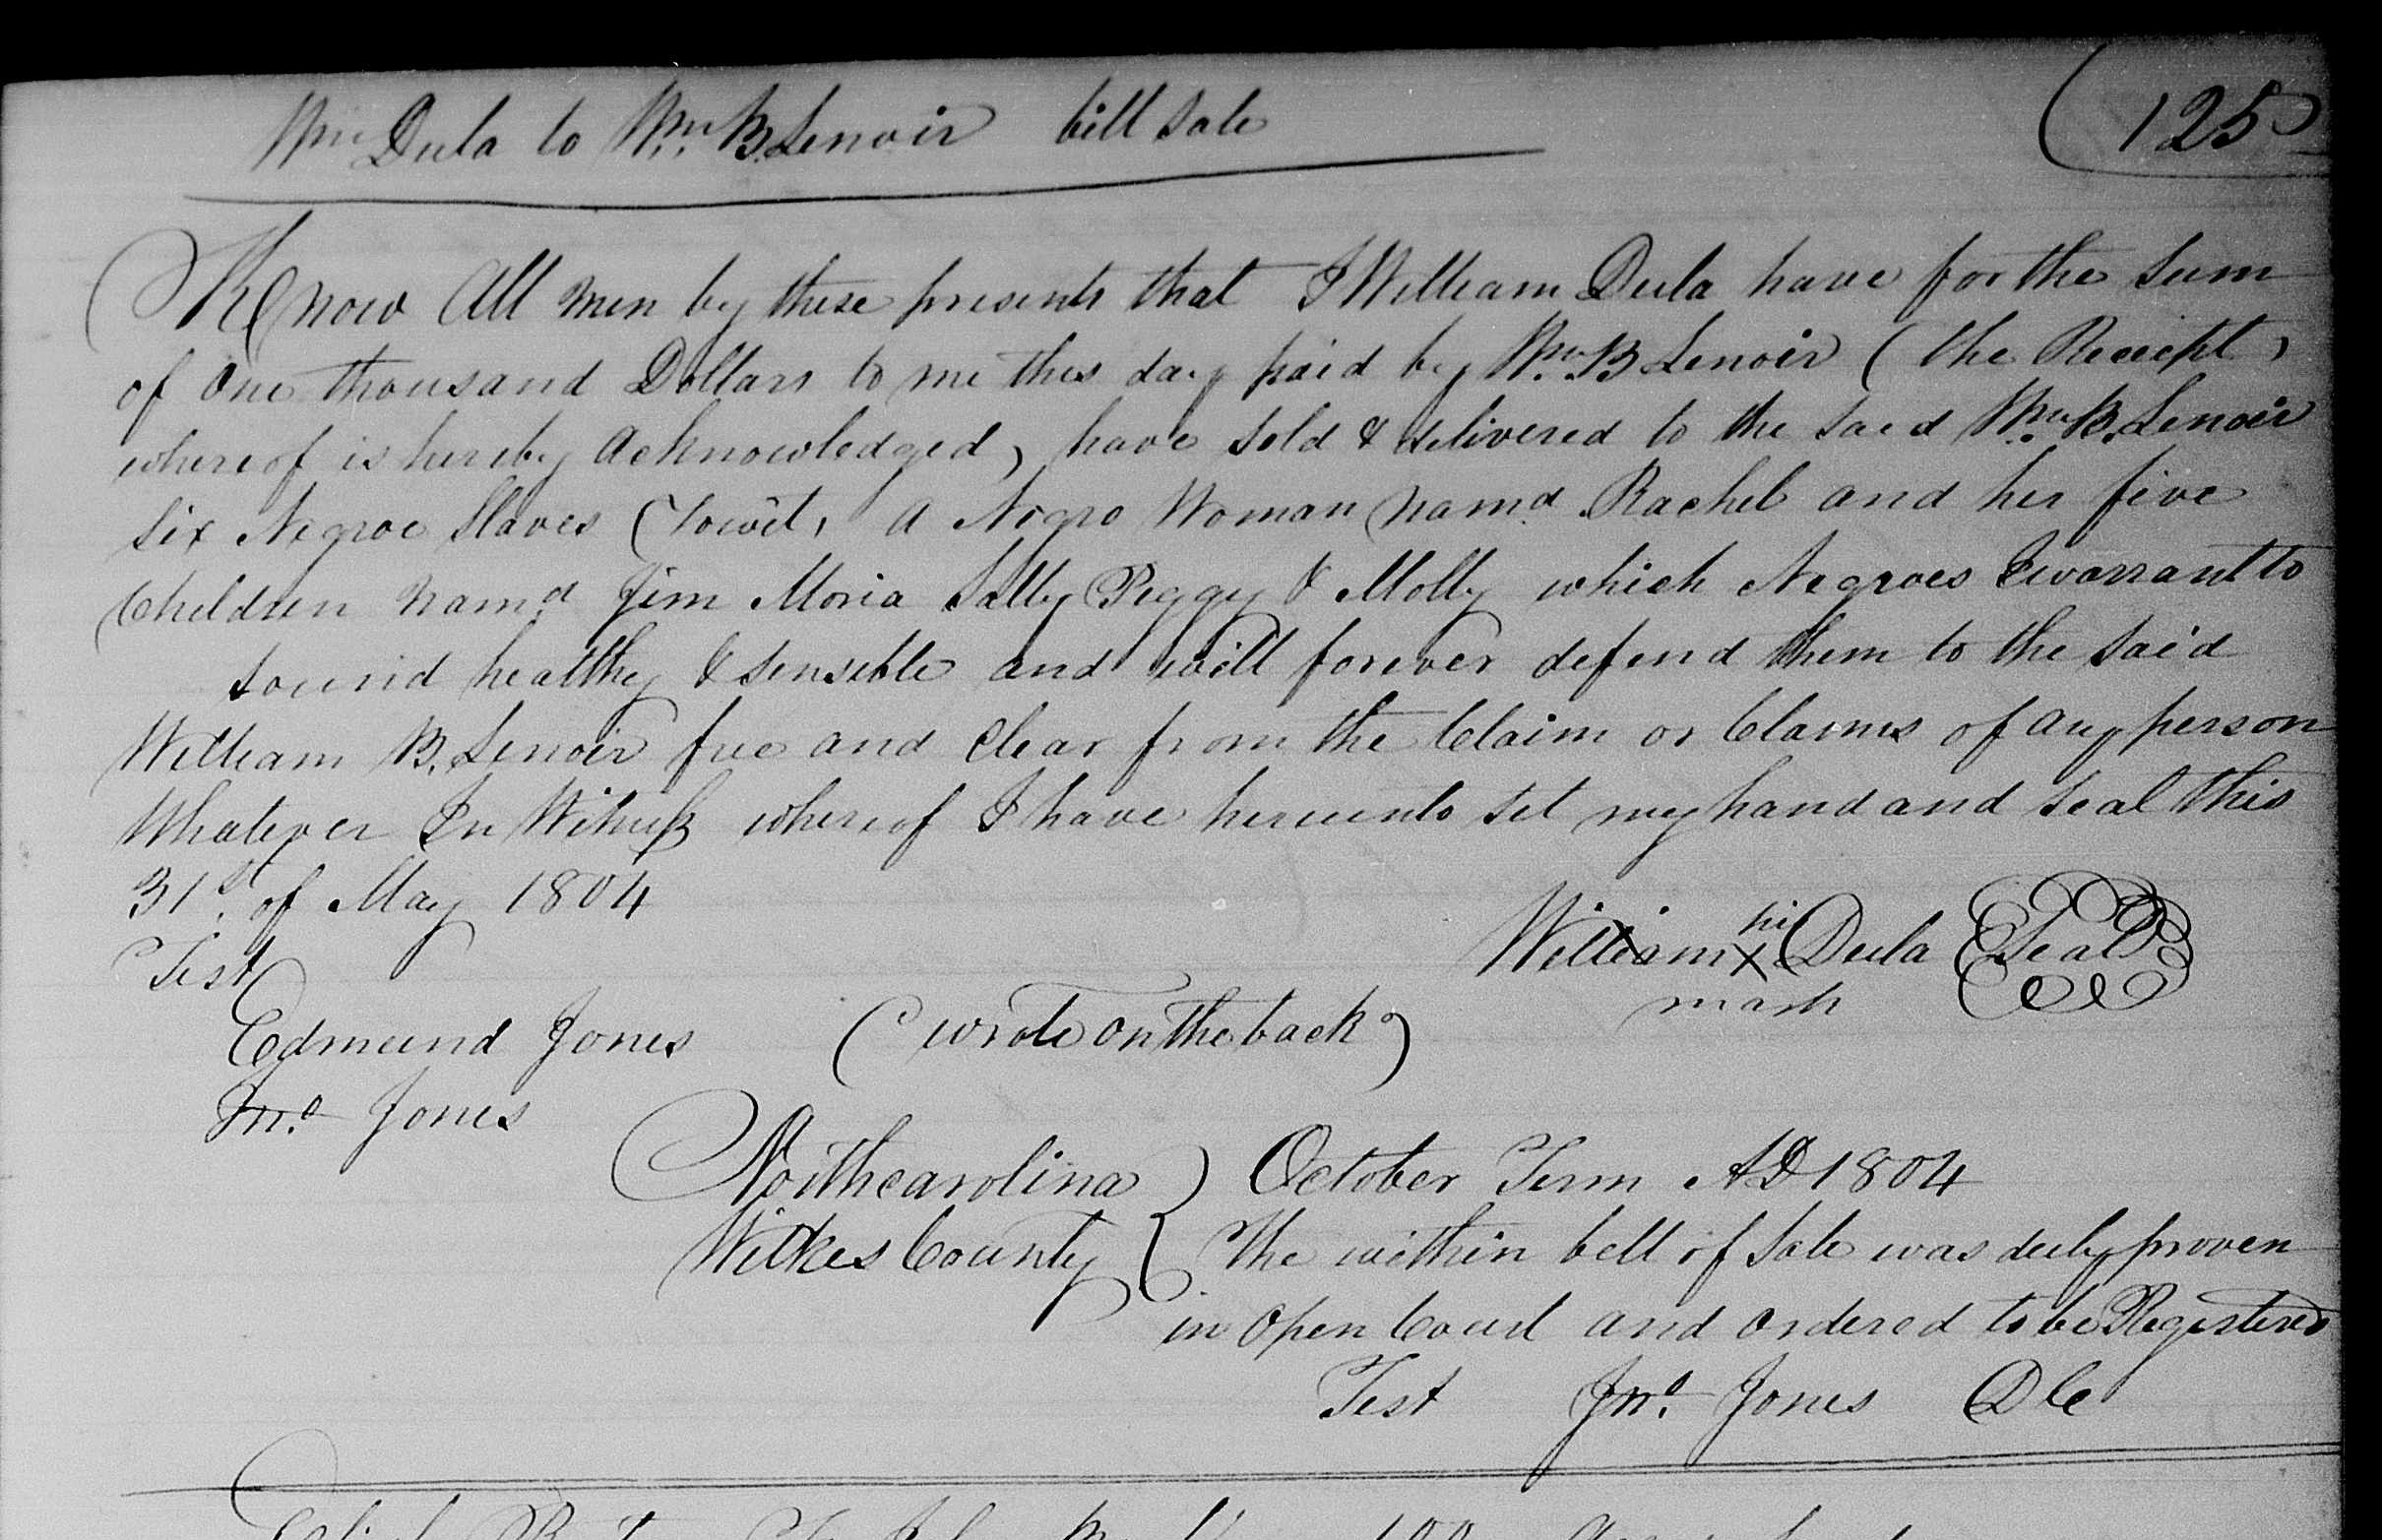 Wm Dula to Wm. B. Lenoir bill Sale
(125
Know All men by these presents that I William Dula have for the Sum
of One thousand Dollars to me this day paid by Wm. B Lenoir (the Receipt,
whereof is hereby Acknowledged, have Sold & delivered to the Said Wm. B. Lenoir
Six Negroe Slaves (Towit, A Negro Woman Namd. Rachel and her five
Children Namd. Jim Moria Sally Peggy & Molly which Negroes I warrant to
Sound healthy & Sensible and will forever defend them to the Said
William B. Lenoir free and Clear from the Claim or Claims of any person
Whatever In Witness whereof I have hereunto Set my hand and Seal this
31st. of May 1804
hi
William X Dula Seal
mark
Test
Edmund Jones (wrote on the back)
Jno. Jones
Northcarolina ) October Term AD 1804
Wilkes County { The within bill of Sale was duly proven
in Open Court and Ordered to be Registered
Test Jno. Jones DC